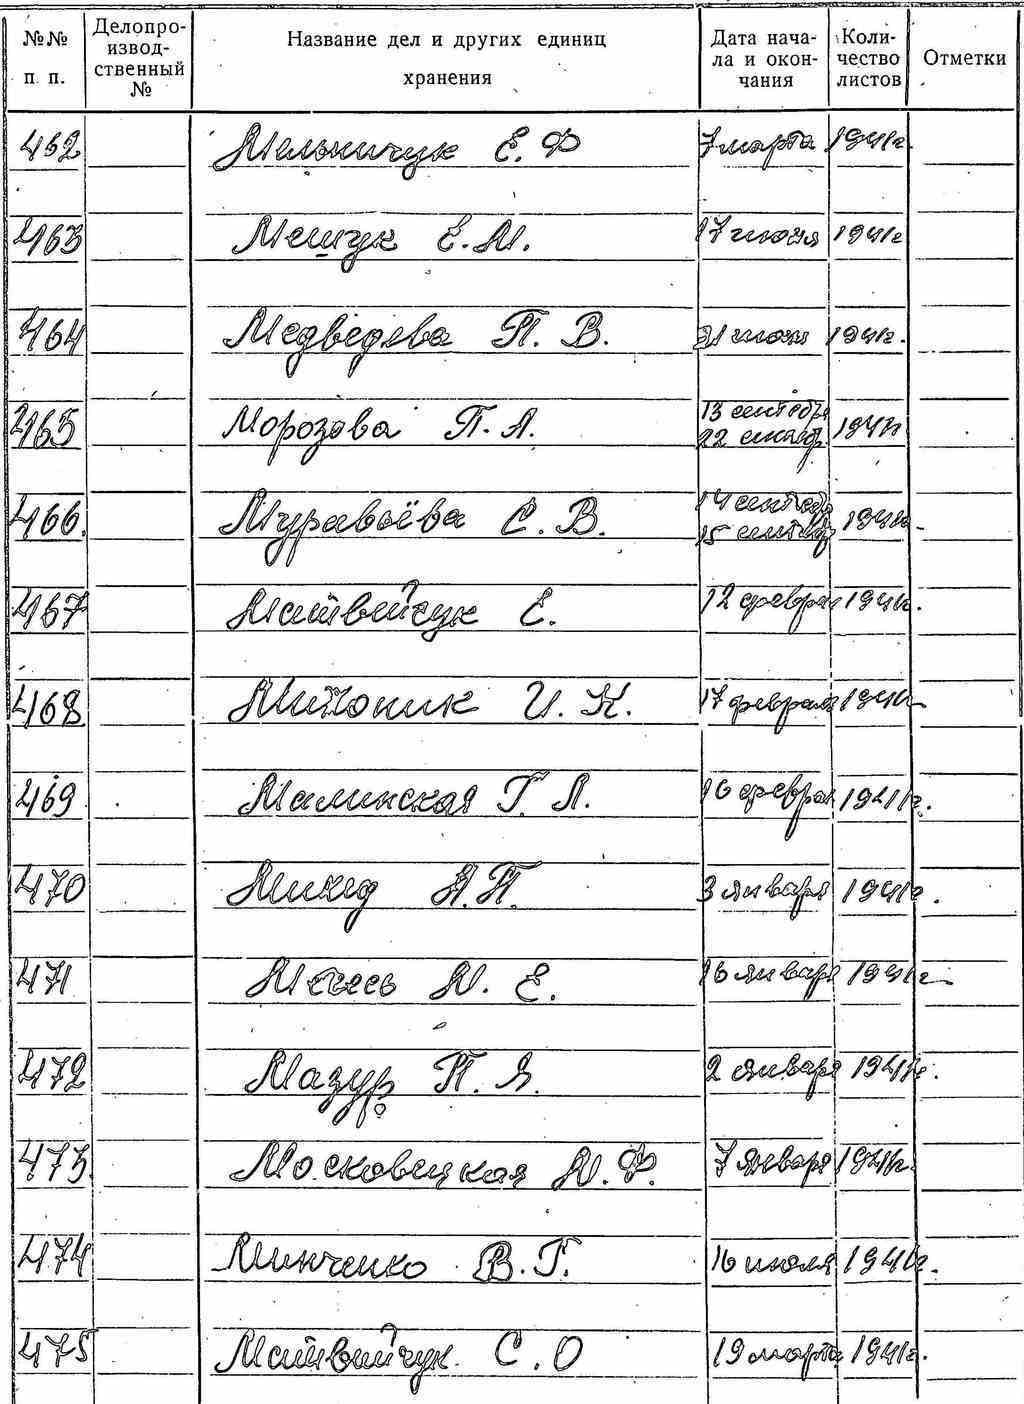 №№ п. п.
Делопро-
изводственный №
Название дел и других единиц
хранения
Дата нача-
ла и окон-
чания
Коли-
чество
листов
Отметки
462 Мельничук Е. Ф 7 марта 1941г.
463 Мешук Е. М. 17 июня 1941г
464 Медведева П. В. 1941г.
465 Морозова П. А. 13 сентябр
22 1941г
466. Муравьёва С. В. 14 сентяб
15 сентябр 1941г.
467 Матвийчук Е. 12 феврал 1941г.
468 И. К. 17 февраля 1941г
469 Малинская Г. Л. 16 феврал 1941г.
470 А. П. 3 января 1941г.
471 М. Е. 16 января 1941г
472 Мазур П. Я. 2 января 1941г.
473. Московецкая М. Ф. 7 января 1941г.
474 Минченко В. Г. 16 июля 1941г.
475 Матвийчук С. О 19 марта 1941г.